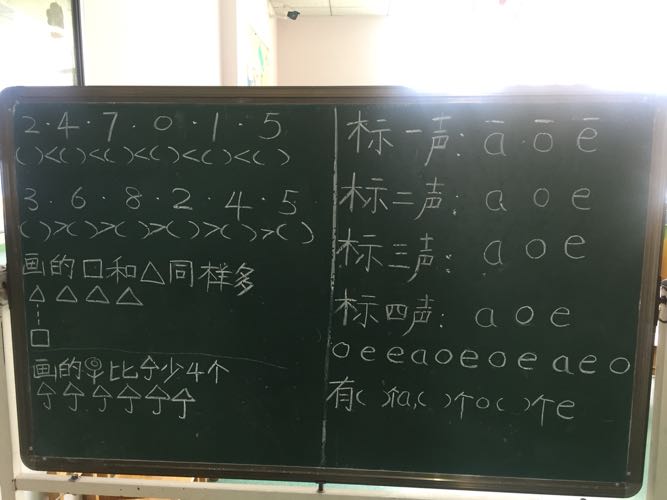 2·4·7·0·1·5
( )<( )<( )<( )<( )<( )
3·6·8·2·4·5
( )>( )>( )>( )>( )>( )
画的□和△同样多
△ △ △ △
□
画的比少4个
标一声: ā ō ē
标二声: a o e
标三声: a o e
标四声: a o e
o e e a o e o e a e o
有( )个a,( )个o( )个e